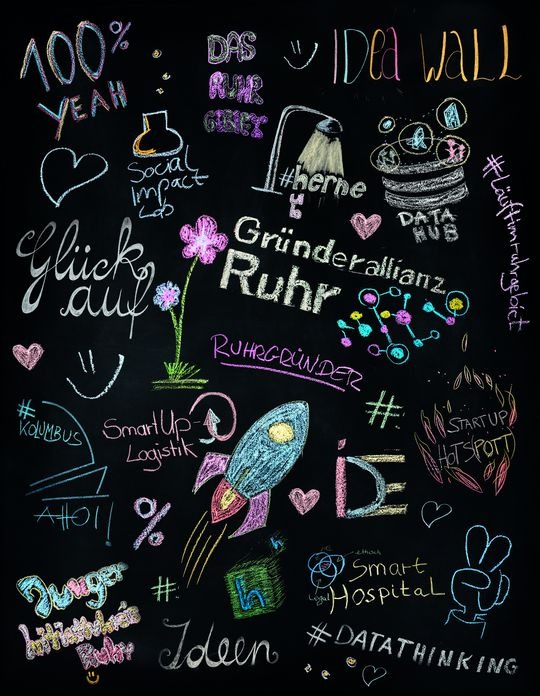 100%
YEAH
DAS
RUHR
GEBIET
IDea WaLL
Social
Impact
Lab
#herne
DATA
HUB
#läuftimruhrgebiet
Glück
auf
Gründerallianz
Ruhr
RUHRGRÜNDER
#
KOLUMBUS
AHOI!
SmartUp-
Logistik
#
STARTUP
HOTSPOTT
IDE
%
Junger
Initiativkreis
Ruhr
#
h
h
Ideen
ethisch
legal
Smart
HospitaL
#DATATHINKING